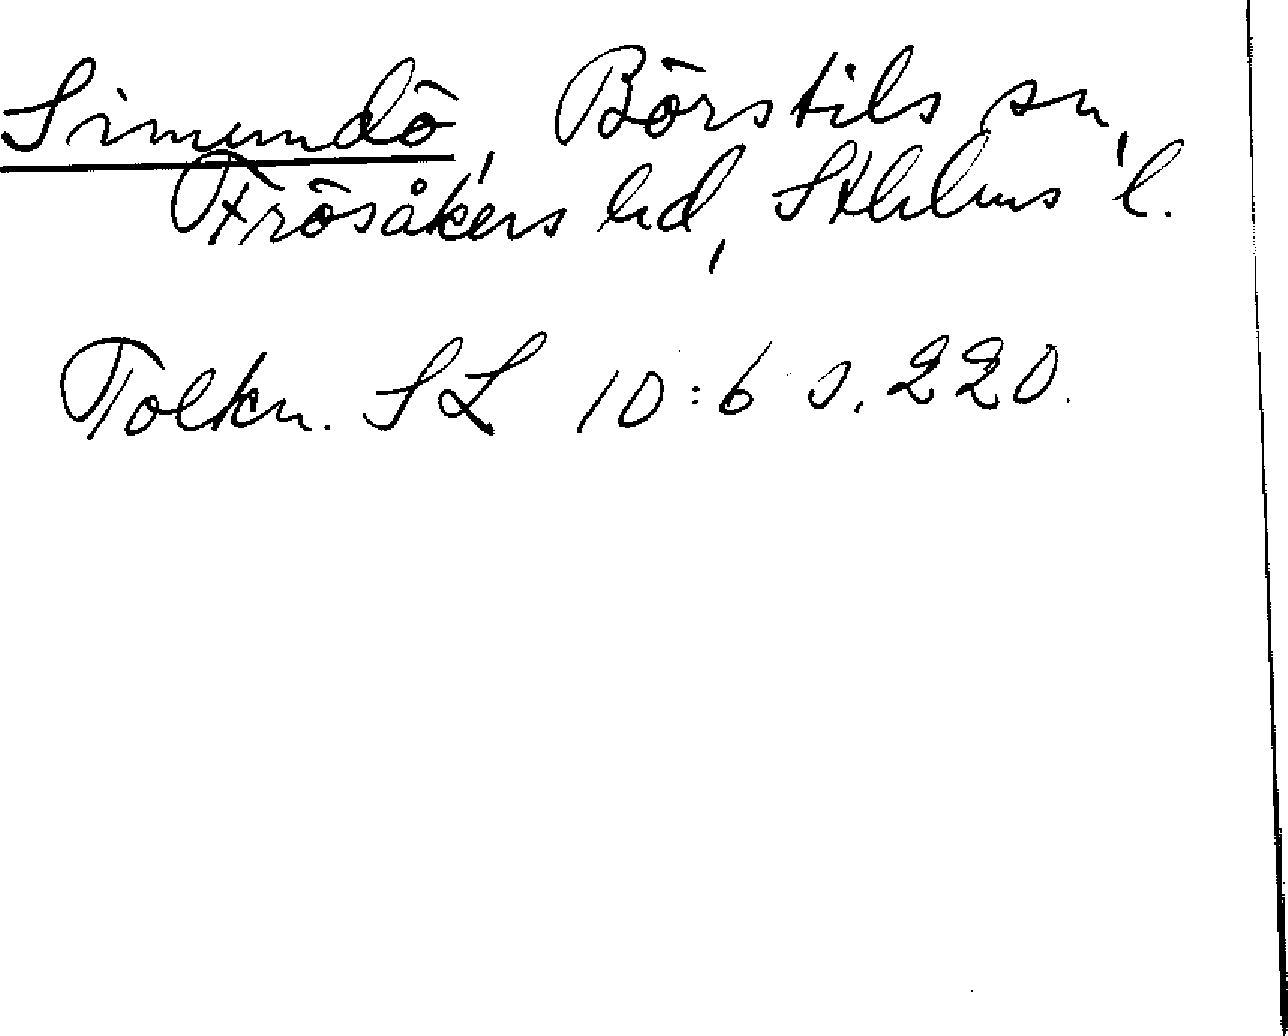 Simundö, Börstils sn,
Frösåkers hd, Sthlms l.
Tolkn. SL 10:6 s. 220.